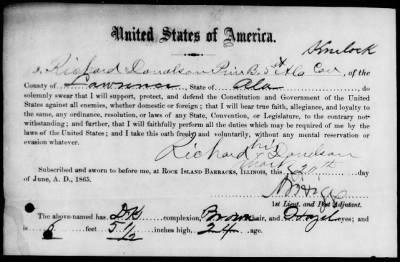 United States of America.
Kinlock
I, Richard Donalson Priv B. 5th Ala Cav, of the
County of Lawrence State of Ala do
solemnly swear that I will support, protect, and defend the Constitution and Government of the United
States against all enemies, whether domestic or foreign; that I will bear true faith, allegiance, and loyalty to
the same, any ordinance, resolution, or laws of any State, Convention, or Legislature, to the contrary not-
withstanding; and further, that I will faithfully perform all the duties which may be required of me by the
laws of the United States; and I take this oath freely and voluntarily, without any mental reservation or
evasion whatever.
his
Richard x Donalson
mark
Subscribed and sworn to before me, at ROCK ISLAND BARRACKS, ILLINOIS, this 20th day
of June, A. D., 1865.
1st Lieut, and Post Adjutant.
The above-named has DK complexion, Brown hair, and Hazel eyes; and
is 5 feet 5 1/2 inches high, 24 age.